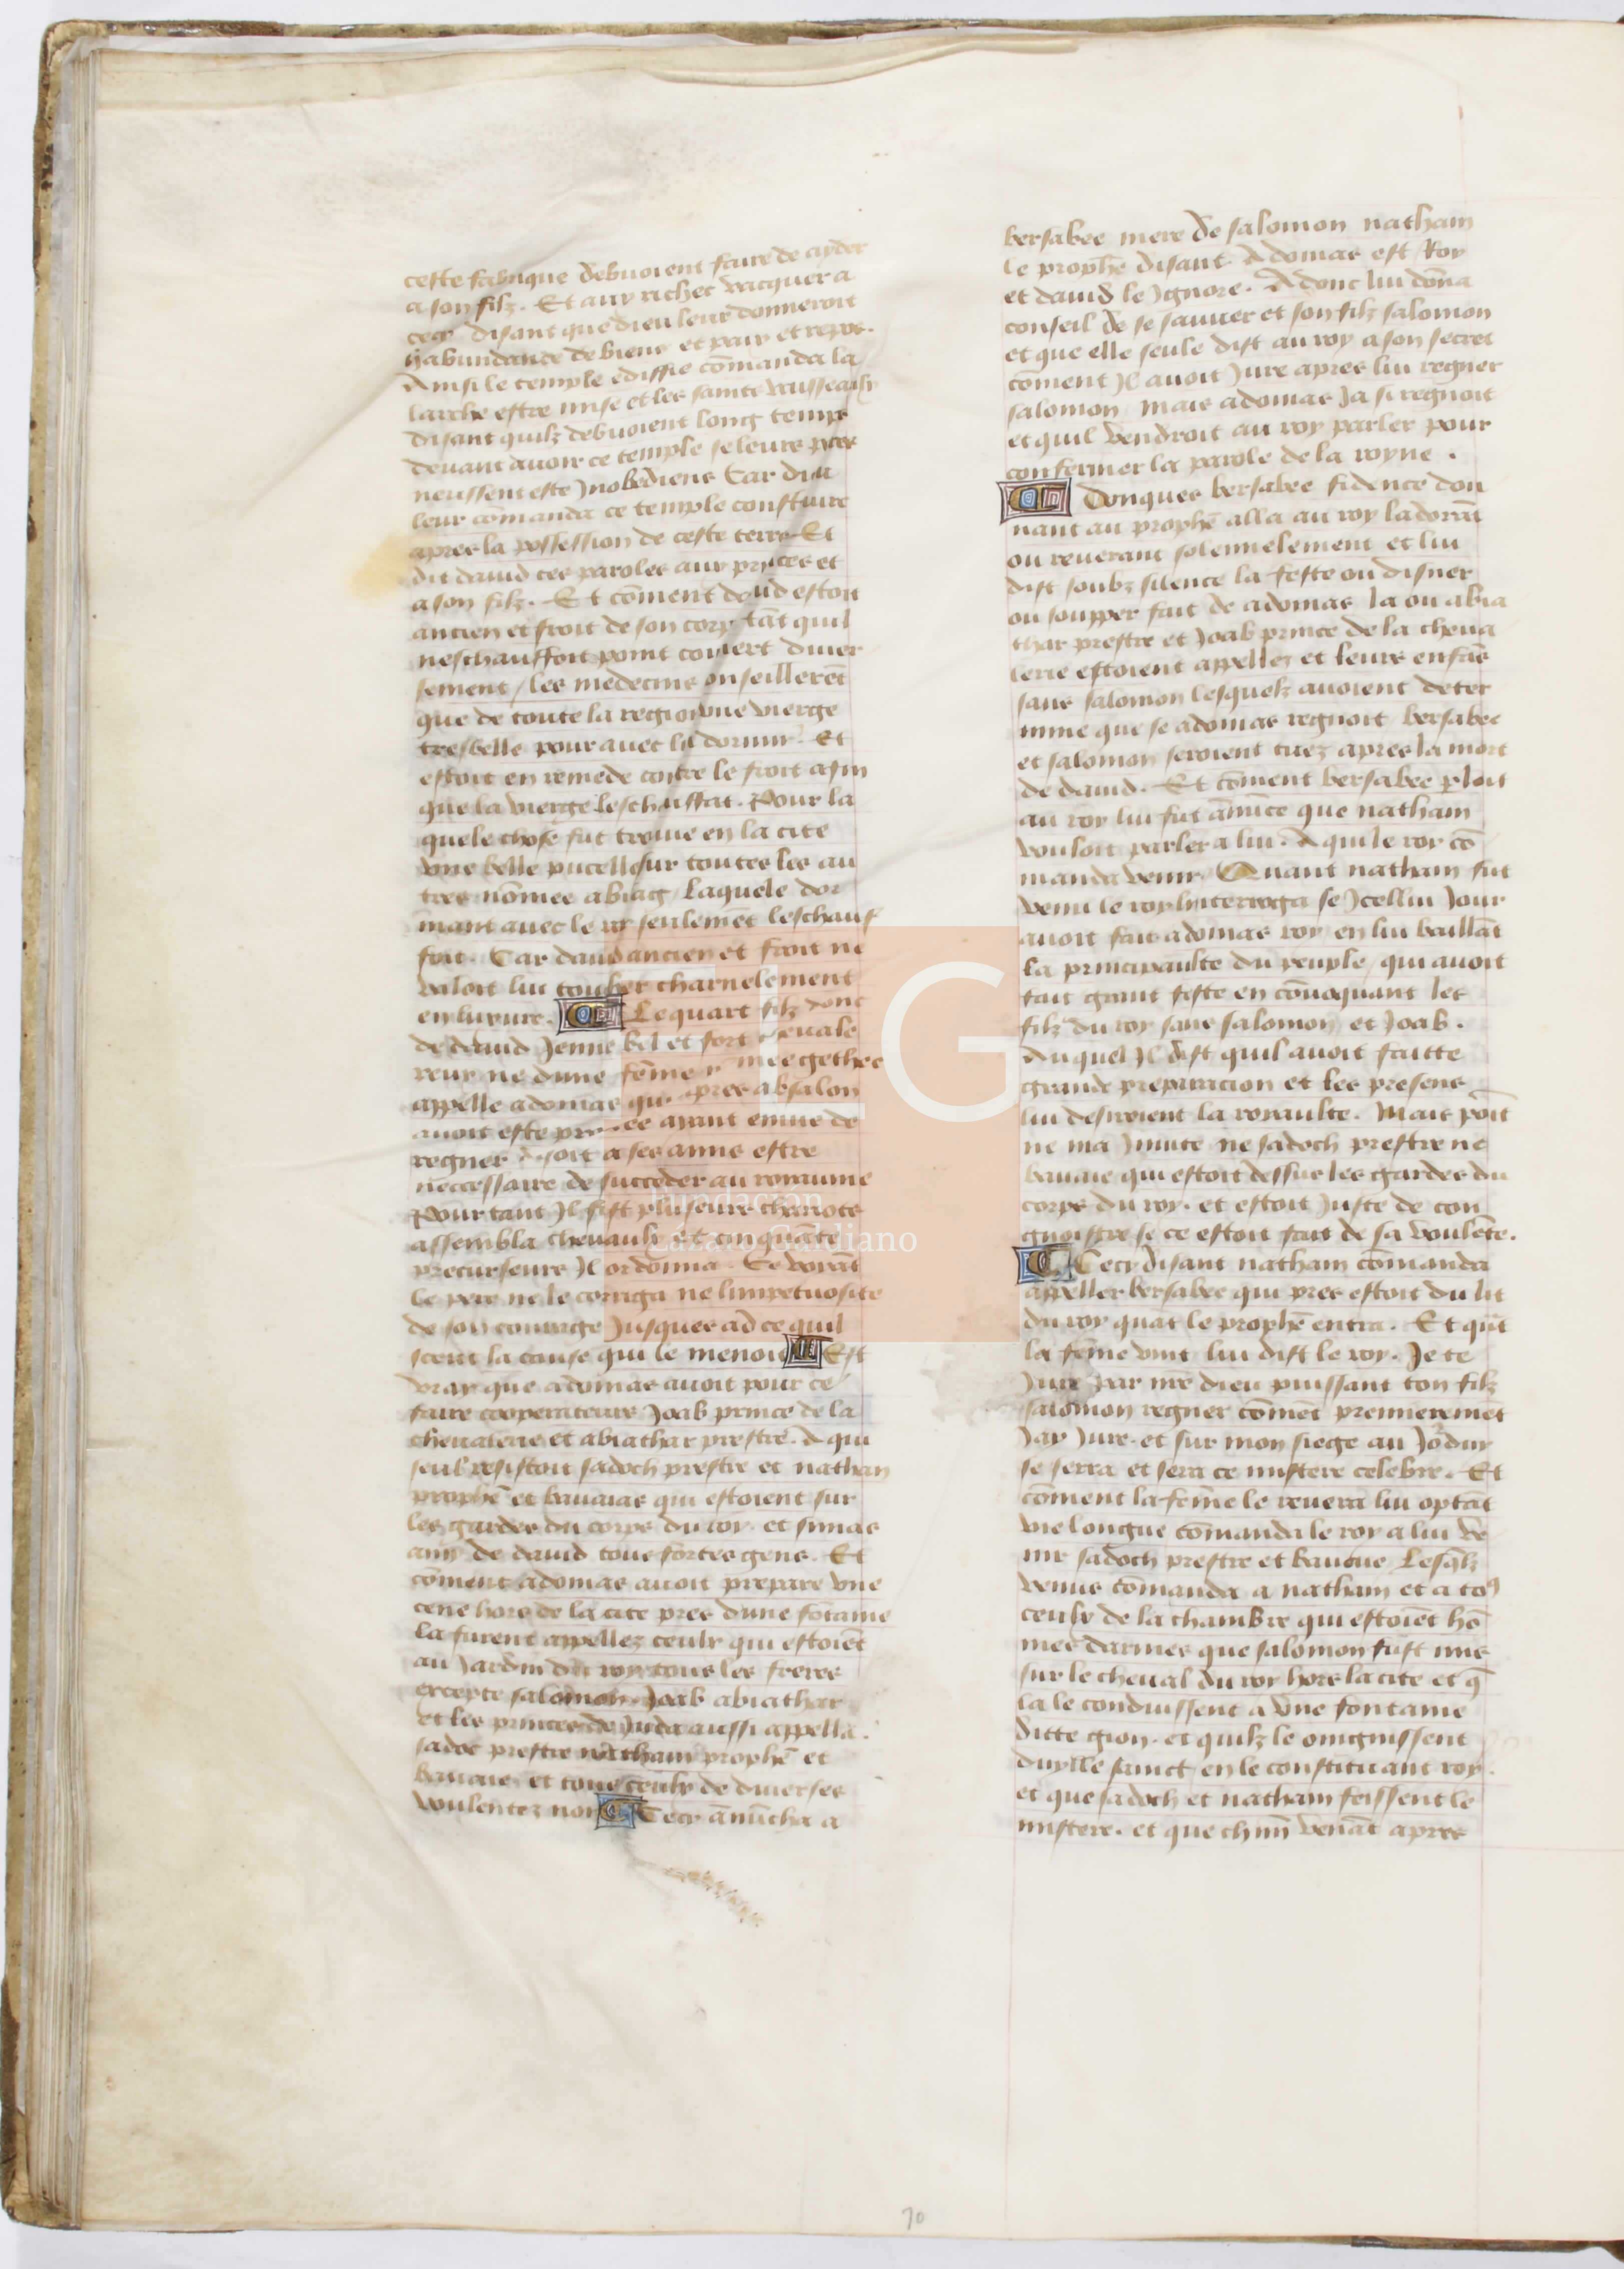 ceste fabrique debuoient faire de ayder
a son filz. Et aux riches vacquer a
ces disant que dieu leur donneroit
habundance de biens et paix et repos.
Ainsi le temple ediffie cōmanda la
larche estre mise et les saints vaisseaulx
disant quilz debuoient long temps
deuant auoir ce temple se leurs peres
neussent este Jnobediens Car dieu
leur cōmanda ce temple construire
apres la possession de ceste terre Et
dit dauid ces paroles aux princes et
a son filz. Et cōment dauid estoit
ancien et froit de son corps tāt quil
neschauffoit point couuert diuer
sement / les medecins conseillerēt
que de toute la region vne vierge
tresbelle pour auec lui dormir. Et
estoit en remede contre le froit afin
que la vierge leschaffat. Pour la
quele chose fut trouue en la cite
vne belle pucelle sur toutes les au
tres nōmee abiag laquele dor
mant auec le roy seulemēt leschauf
foit. Car dauid ancien et froit ne
valoit lui toucher charnelement
en luxure. Le quart filz donc
de dauid Jenne bel et fort cheuale
reux ne dune fēme nōmee gethee
appelle adomas qui apres absalon
auoit este procree ayant enuie de
regner disoit a ses amis estre
neccessaire de succeder au royaume
Pour tant Jl fist pluseurs chariots
assembla cheuaulx et cinquāte
precurseurs Jl ordonna. Ce voiāt
le pere ne le corriga ne limpetuosite
de son courage Jusques ad ce quil
sceut la cause qui le menoit Est
vray que adomas auoit pour ce
faire cooperateurs Joab prince de la
cheualerie et abiathar prestre. A qui
seul resistoit sadoch prestre et nathan
prophē et banaias qui estoient sur
les gardes du corps du roy. et simas
amy de dauid tous fortes gens. Et
cōment adomas auoit prepare vne
cene hors de la cite pres dune fōtaine
la furent appellez ceulx qui estoiēt
au Jardin du roy tous les freres
excepte salomon. Joab abiathar
et les princes de Juda aussi appella.
sadoc prestre natham prophē et
banaie et tous ceulx de diuerses
voulentez non Cecy ānūcha a
bersabee mere de salomon natham
le prophē disant Adomas est Roy
et dauid le Jgnore. Adonc lui dōna
conseil de se sauuer et son filz salomon
et que elle seule dist au roy a son secret
cōment Jl auoit Jure apres lui regner
salomon Mais adomas Ja si regnoit
et quil vendroit au roy parler pour
confermer la parole de la royne.
Adonques bersabee fidence don
nant au prophē alla au roy ladorāt
ou reuerant solennelement et lui
dist soubz silence la feste ou disner
ou soupper fait de adomas la ou abia
thar prestre et Joab prince de la cheua
lerie estoient appellez et leurs enfās
sans salomon lesquelz auoient deter
mine que se adomas regnoit bersabee
et salomon seroient tuez apres la mort
de dauid. Et cōment bersabee ploit
au roy lui fut ānūce que natham
vouloit parler a lui. A qui le roy cō
manda venir Quant natham fut
venu le roy linterroga se Jcellui Jour
auoit fait adomas roy en lui baillāt
la principaulte du peuple qui auoit
fait grant feste en cōuoquant les
filz du roy sans salomon et Joab.
Auquel Jl dist quil auoit faitte
grande preparacion et les presens
lui desiroient la royaulte. Mais poīt
ne ma Jnuite ne sadoch prestre ne
banaie qui estoit dessus les gardes du
corps du roy. et estoit Juste de con
gnoistre se ce estoit fait de sa voulēte.
Cecy disant natham cōmanda
appeller bersabee qui pres estoit du lit
du roy quāt le prophē entra. Et qūt
la fēme vint lui dist le roy. Je te
Jure par nrē dieu puissant ton filz
salomon regner cōmēt premieremēt
Jay Jure. et sur mon siege au Jōduy
se serra et sera ce mistere celebre. Et
cōment la fēme le reuera lui optāt
vie longue cōmanda le roy a lui ve
nir sadoch prestre et banaie Lesq̄lz
venus cōmanda a natham et a toꝰ
ceulx de la chambre qui estoiēt hō
mes darmes que salomon fust mis
sur le cheual du roy hors la cite et q̄
la le conduissent a vne fontaine
ditte gion. et quilz le onignissent
duylle sainct en le constituant roy.
et que sadoch et natham feissent le
mistere. et que chūn venāt apres
70
Fundación
Lázaro Galdiano
G